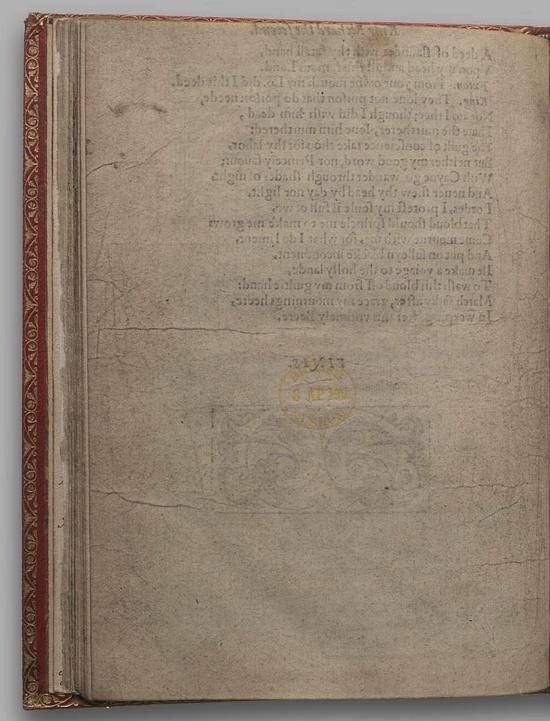 King Richard the second.
A deed of slaunder with thy fatall hand,
Vpon my head and all this Land.
Exton. From your owne mouth my Lo. did I this deed.
King. They loue not poison that do poison neede,
Nor do I thee; though I did wish him dead,
I hate the murtherer, loue him murthered:
The guilt of conscience take thou for thy labor,
But neither my good word, nor Princely fauour;
With Cayne go wander through shade of night,
And neuer shew thy head by day nor light.
Lordes, I protest my soule is full of wo,
That bloud should sprincle me to make me grow:
Come mourne with me, for what I do lament,
And put on sulleyn blacke incontinent,
Ile make a voiage to the holly lande,
To wash this bloud off from my guiltie hand:
March sadly after, grace my mournings heere,
In weeping after this vntimely Beere,
FINIS.
8 AP